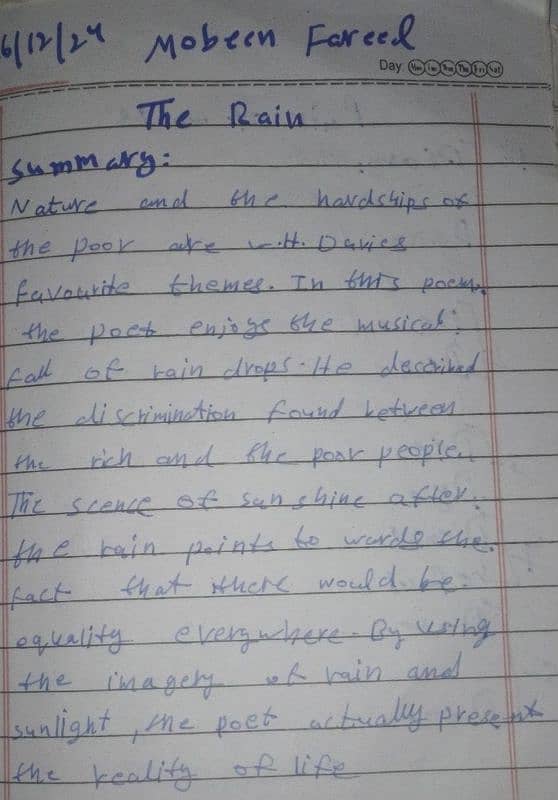 6/12/24 Mobeen Fareed
Day: Mon Tue Wed Thu Fri Sat
The Rain
Summary:
Nature and the hardships of
the poor are W.H. Davies
favourite themes. In this poem,
the poet enjoys the musical
fall of rain drops. He described
the discrimination found between
the rich and the poor people.
The scence of sun shine after
the rain points to wards the
fact that there would be
equality everywhere. By using
the imagery of rain and
sunlight, the poet actually present
the reality of life